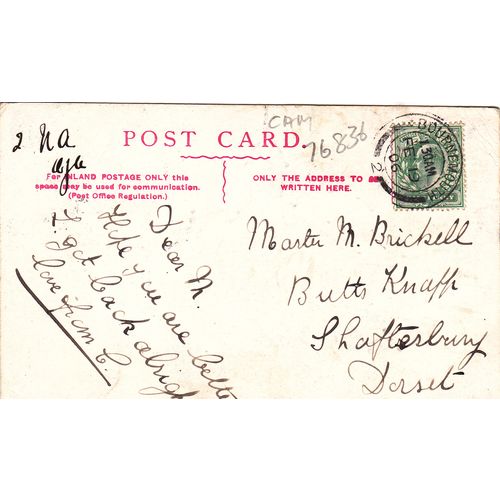 CAM
76836
2
POST CARD.
For INLAND POSTAGE ONLY this
space may be used for communication.
(Post Office Regulation.)
ONLY THE ADDRESS TO BE
WRITTEN HERE.
BOURNEMOUTH
FE 19
06
2
Dear M.
Hope you are bette
I got back alrigh
love from C.
Master M. Brickell
Butts Knapp
Shaftesbury
Dorset